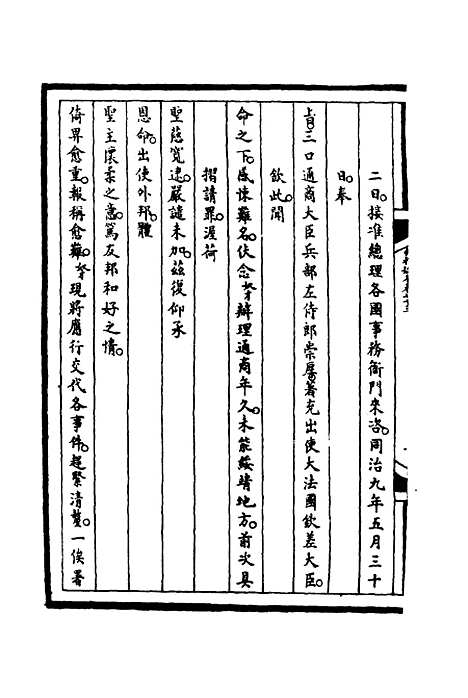 二日接准總理各國事務衙門來咨同治九年五月三十
日奉
上諭三口通商大臣兵部左侍郎崇厚著充出使大法國欽差大臣
欽此聞
命之下感悚難名伏念奴才辦理通商年久未能綏靖地方前次具
摺請罪渥荷
聖慈寬逮嚴譴未加茲復仰承
恩命出使外邦體
聖主懷柔之意篤友邦和好之情
倚畀愈重報稱愈難奴才現將應行交代各事件趕緊清釐一俟署